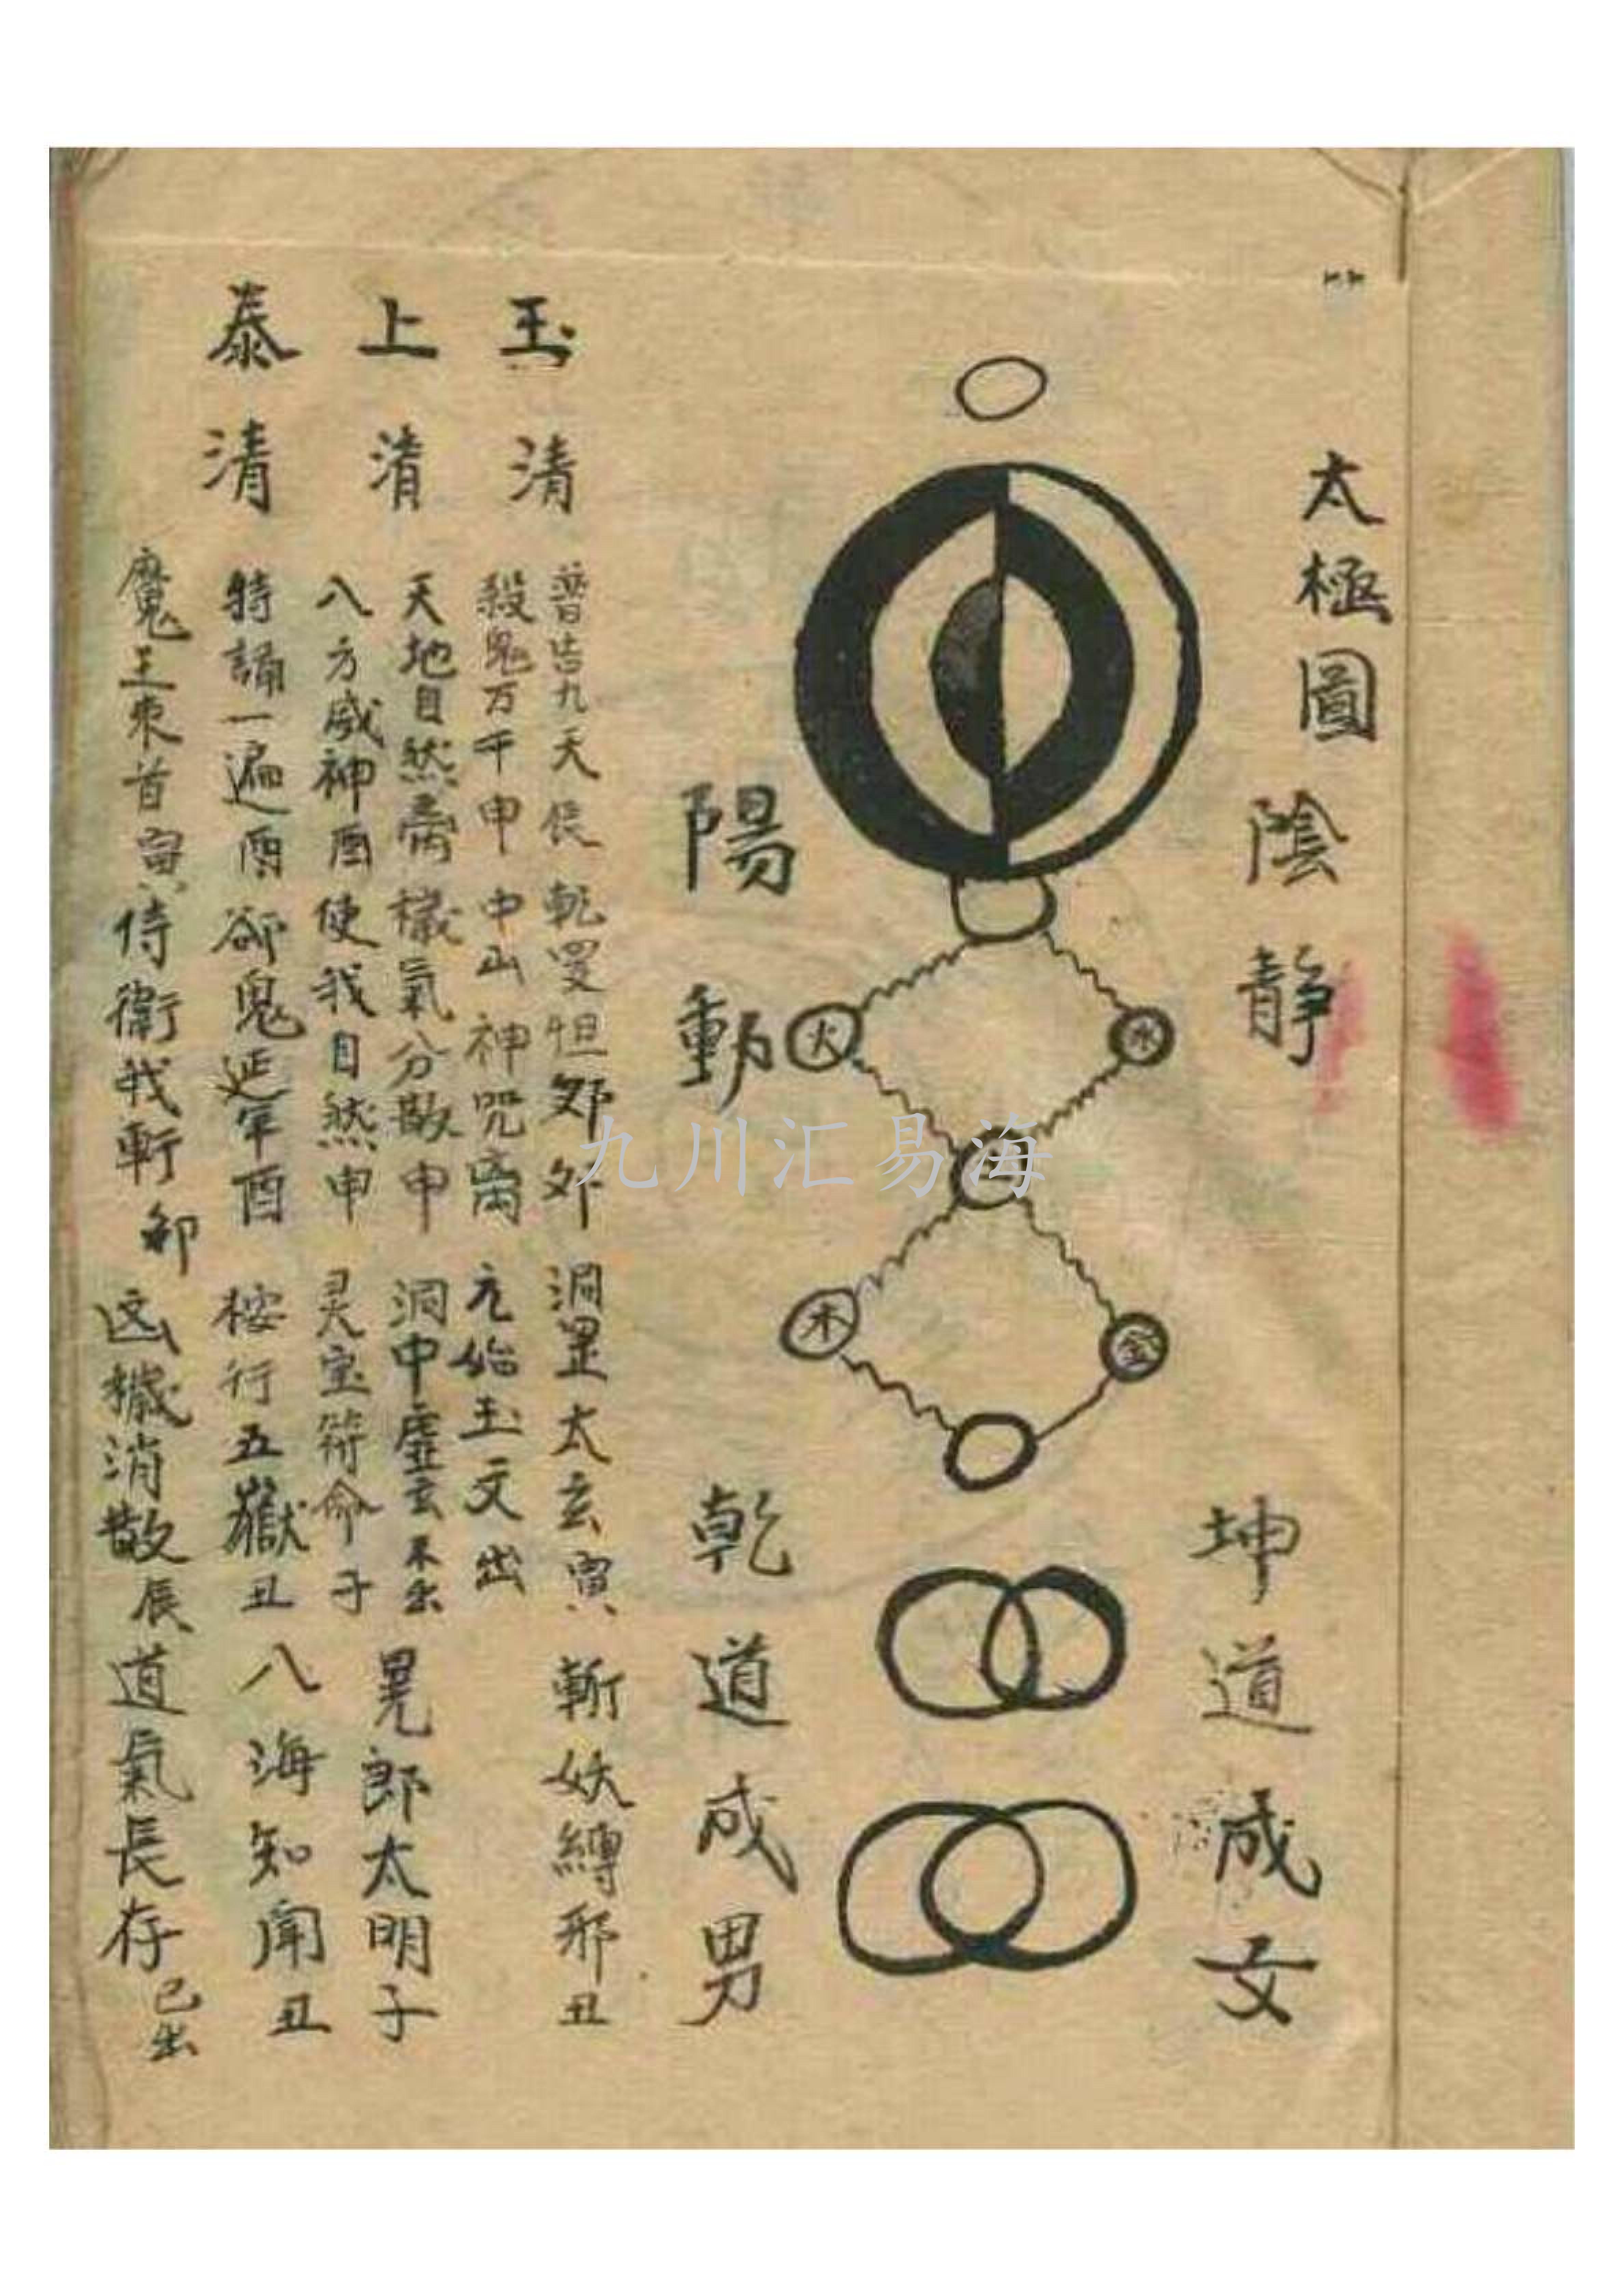 太極圖
陰靜
陽動
火
水
木
金
坤道成女
乾道成男
玉清
上清
泰清
普告九天 乾罡怛 洞罡太玄寅 斬妖縛邪丑
殺鬼万千申 中山神咒 元始玉文出
天地自然 穢氣分散申 洞中虛玄 晃郎太明子
八方威神酉 使我自然申 灵宝符命子
特誦一遍酉 卻鬼延年酉 桉行五嶽丑 八海知聞丑
魔王束首寅 侍衛我軒卯 凶穢消散辰 道氣長存已出
九川汇易海